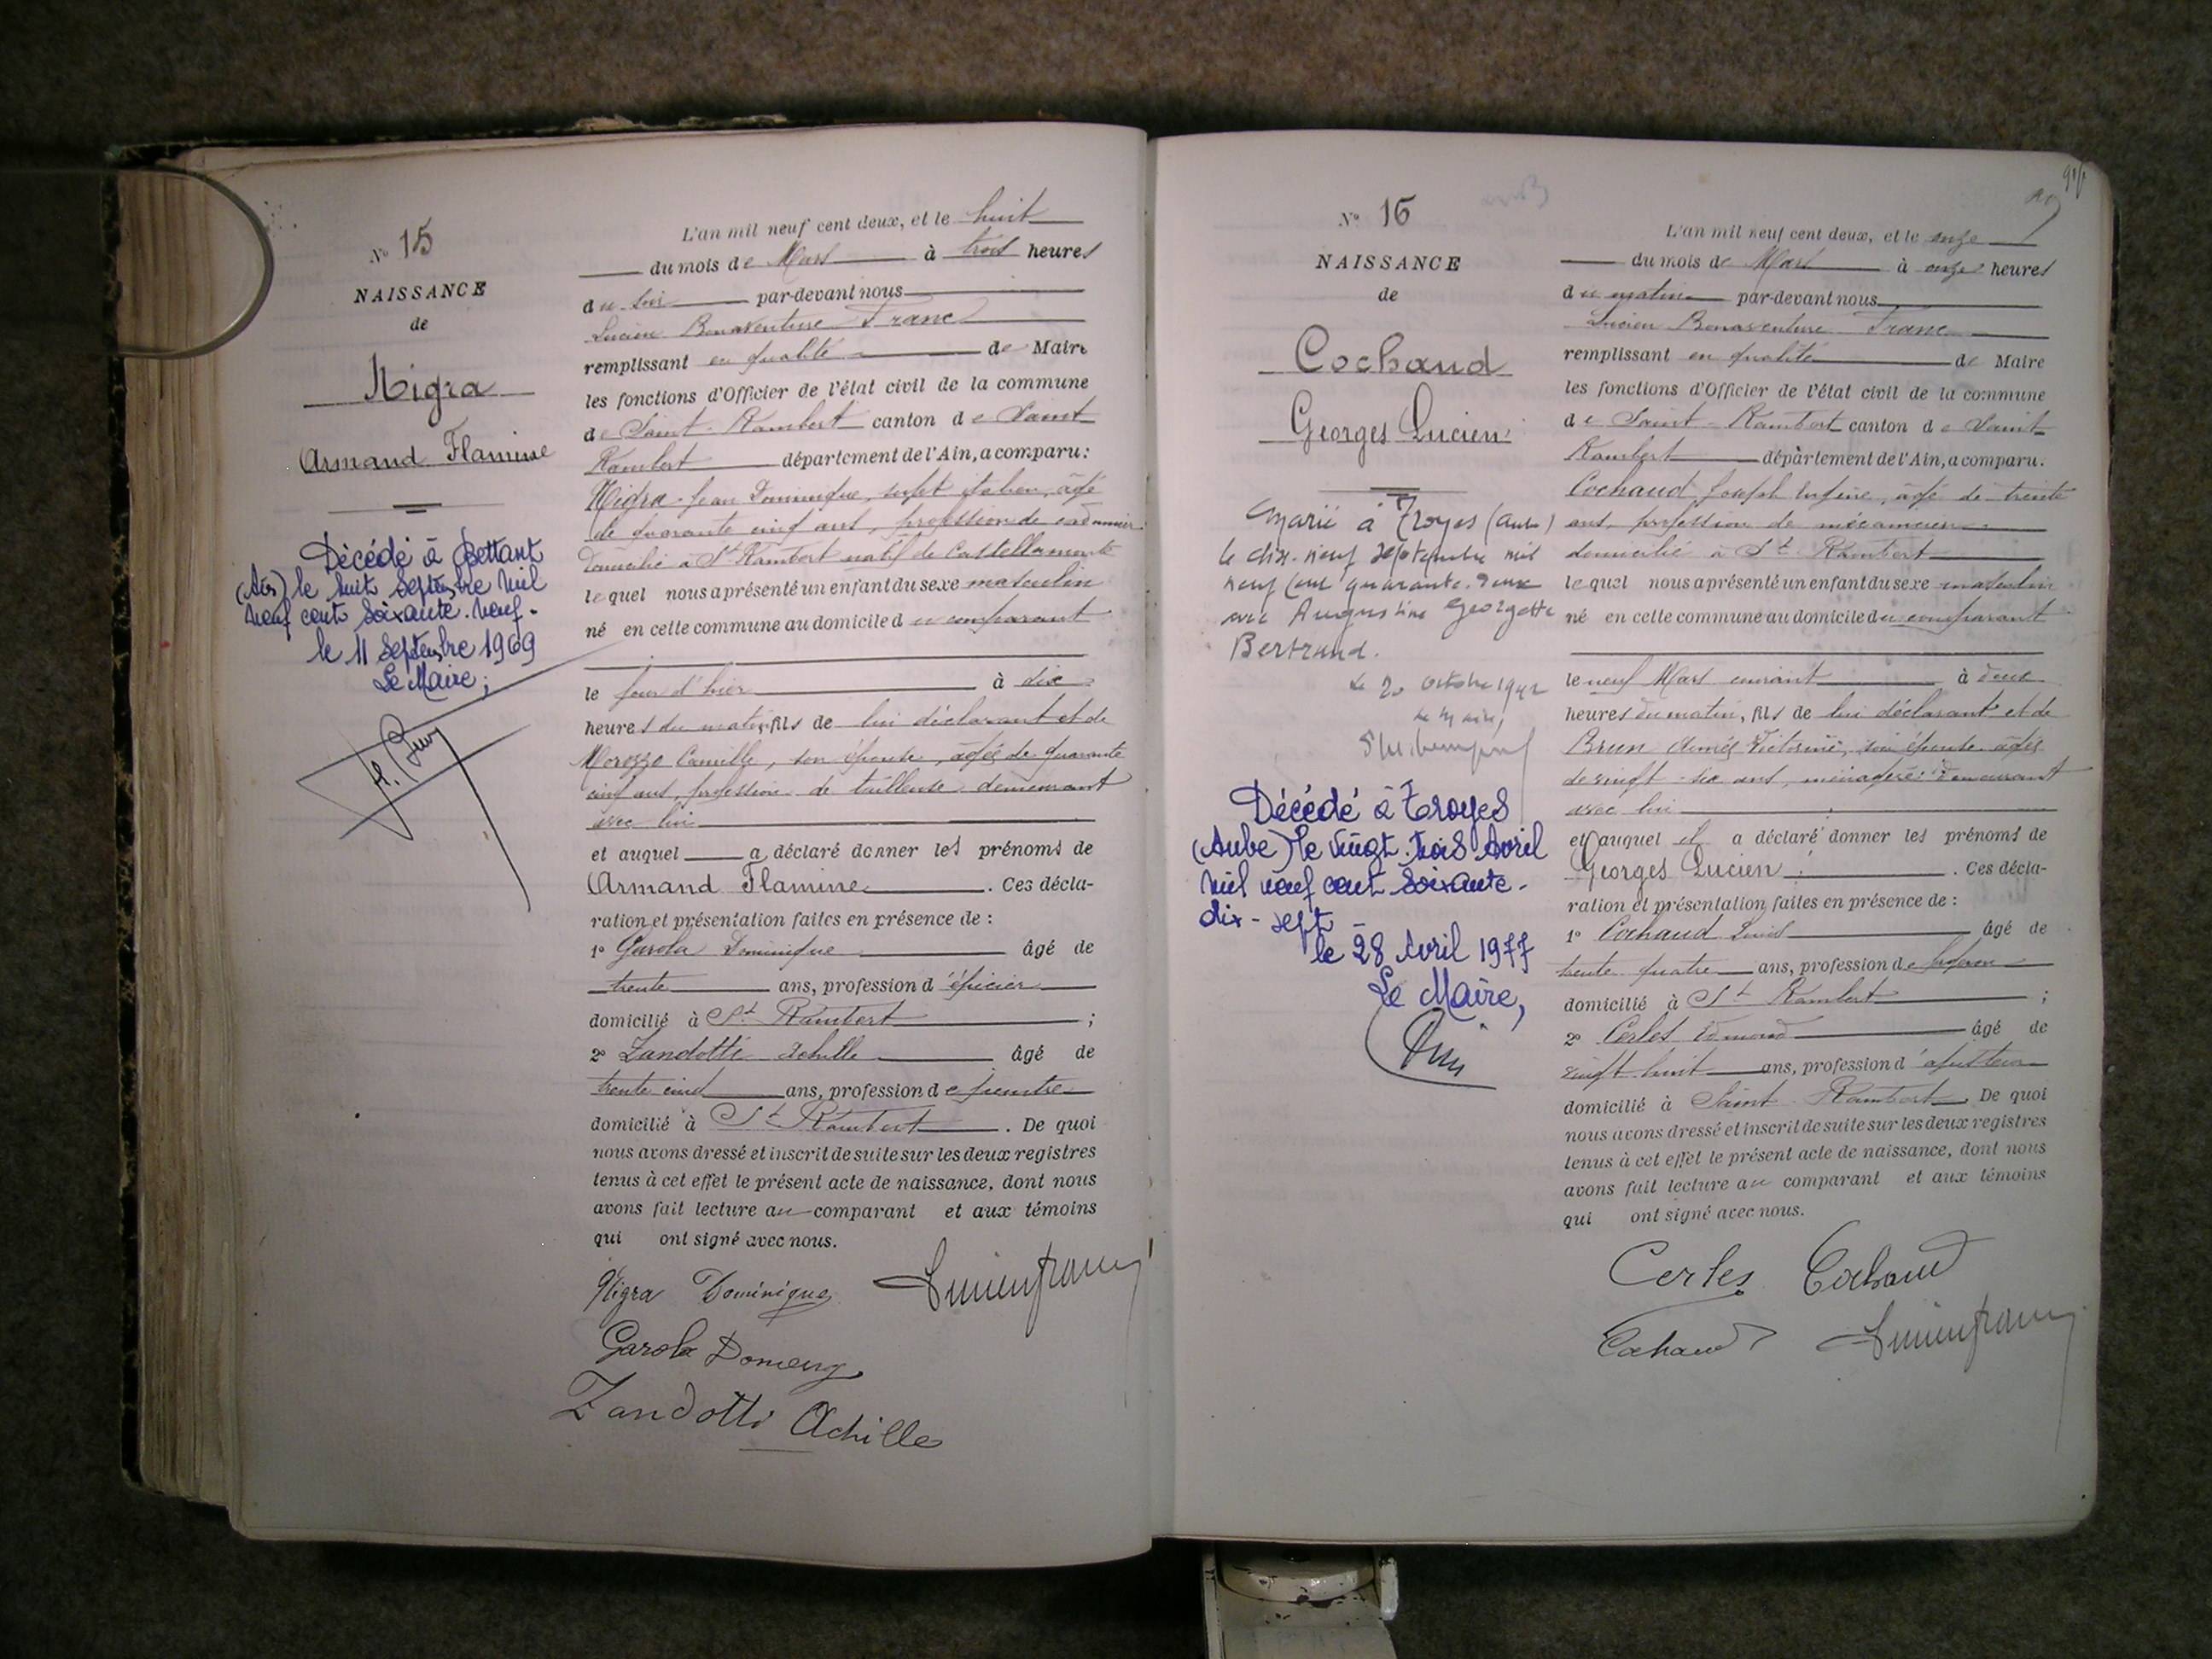 N° 15
NAISSANCE
de
Nigra
Armand Flamine
Décédé à Bettant
(Ain) le huit Septembre mil
neuf cent soixante-neuf.
le 11 Septembre 1969
Le Maire,
L'an mil neuf cent deux, et le huit
du mois de Mars à trois heures
du soir par-devant nous
Lucien Bonaventure Franc
remplissant en qualité de Maire
les fonctions d'Officier de l'état civil de la commune
de Saint-Rambert canton de Saint
Rambert département de l'Ain, a comparu:
Nigra Jean Dominique, sujet italien, âgé
de quarante cinq ans, profession de cordonnier
domicilié à St Rambert natif de Castellamonte
lequel nous a présenté un enfant du sexe masculin
né en cette commune au domicile du comparant
le jour d'hier à dix
heures du matin, fils de lui déclarant et de
Morozzo Camille, son épouse, âgée de quarante
cinq ans, profession de tailleuse demeurant
avec lui
et auquel a déclaré donner les prénoms de
Armand Flamine. Ces décla-
ration et présentation faites en présence de :
1° Garola Dominique âgé de
trente ans, profession d'épicier
domicilié à St Rambert ;
2° Zandotti Achille âgé de
trente cinq ans, profession de peintre
domicilié à St Rambert. De quoi
nous avons dressé et inscrit de suite sur les deux registres
tenus à cet effet le présent acte de naissance, dont nous
avons fait lecture au comparant et aux témoins
qui ont signé avec nous.
Nigra Dominique Lucien franc
Garola Domeng
Zandotti Achille
N° 16
NAISSANCE
de
Cochaud
Georges Lucien
Marié à Troyes (Aube)
le dix-neuf septembre mil
neuf cent quarante-deux
avec Augustine Georgette
Bertrand.
le 20 octobre 1942
le Maire,
Décédé à Troyes
(Aube) le vingt-trois Avril
mil neuf cent soixante-
dix-sept
le 28 Avril 1977
Le Maire,
L'an mil neuf cent deux, et le onze
du mois de Mars à onze heures
du matin par-devant nous
Lucien Bonaventure Franc
remplissant en qualité de Maire
les fonctions d'Officier de l'état civil de la commune
de Saint-Rambert canton de Saint
Rambert département de l'Ain, a comparu.
Cochaud Joseph Eugène, âgé de trente
ans, profession de mécanicien
domicilié à St Rambert
lequel nous a présenté un enfant du sexe masculin
né en cette commune au domicile du comparant
le neuf Mars courant à deux
heures du matin, fils de lui déclarant et de
Brun Aimée Victorine, son épouse âgée
de vingt-six ans, ménagère demeurant
avec lui
et auquel il a déclaré donner les prénoms de
Georges Lucien. Ces décla-
ration et présentation faites en présence de :
1° Cochaud Louis âgé de
trente quatre ans, profession de
domicilié à St Rambert ;
2° Cerles Edmond âgé de
vingt huit ans, profession d'ajusteur
domicilié à Saint Rambert. De quoi
nous avons dressé et inscrit de suite sur les deux registres
tenus à cet effet le présent acte de naissance, dont nous
avons fait lecture au comparant et aux témoins
qui ont signé avec nous.
Cerles Cochaud
Cochaud Lucien franc